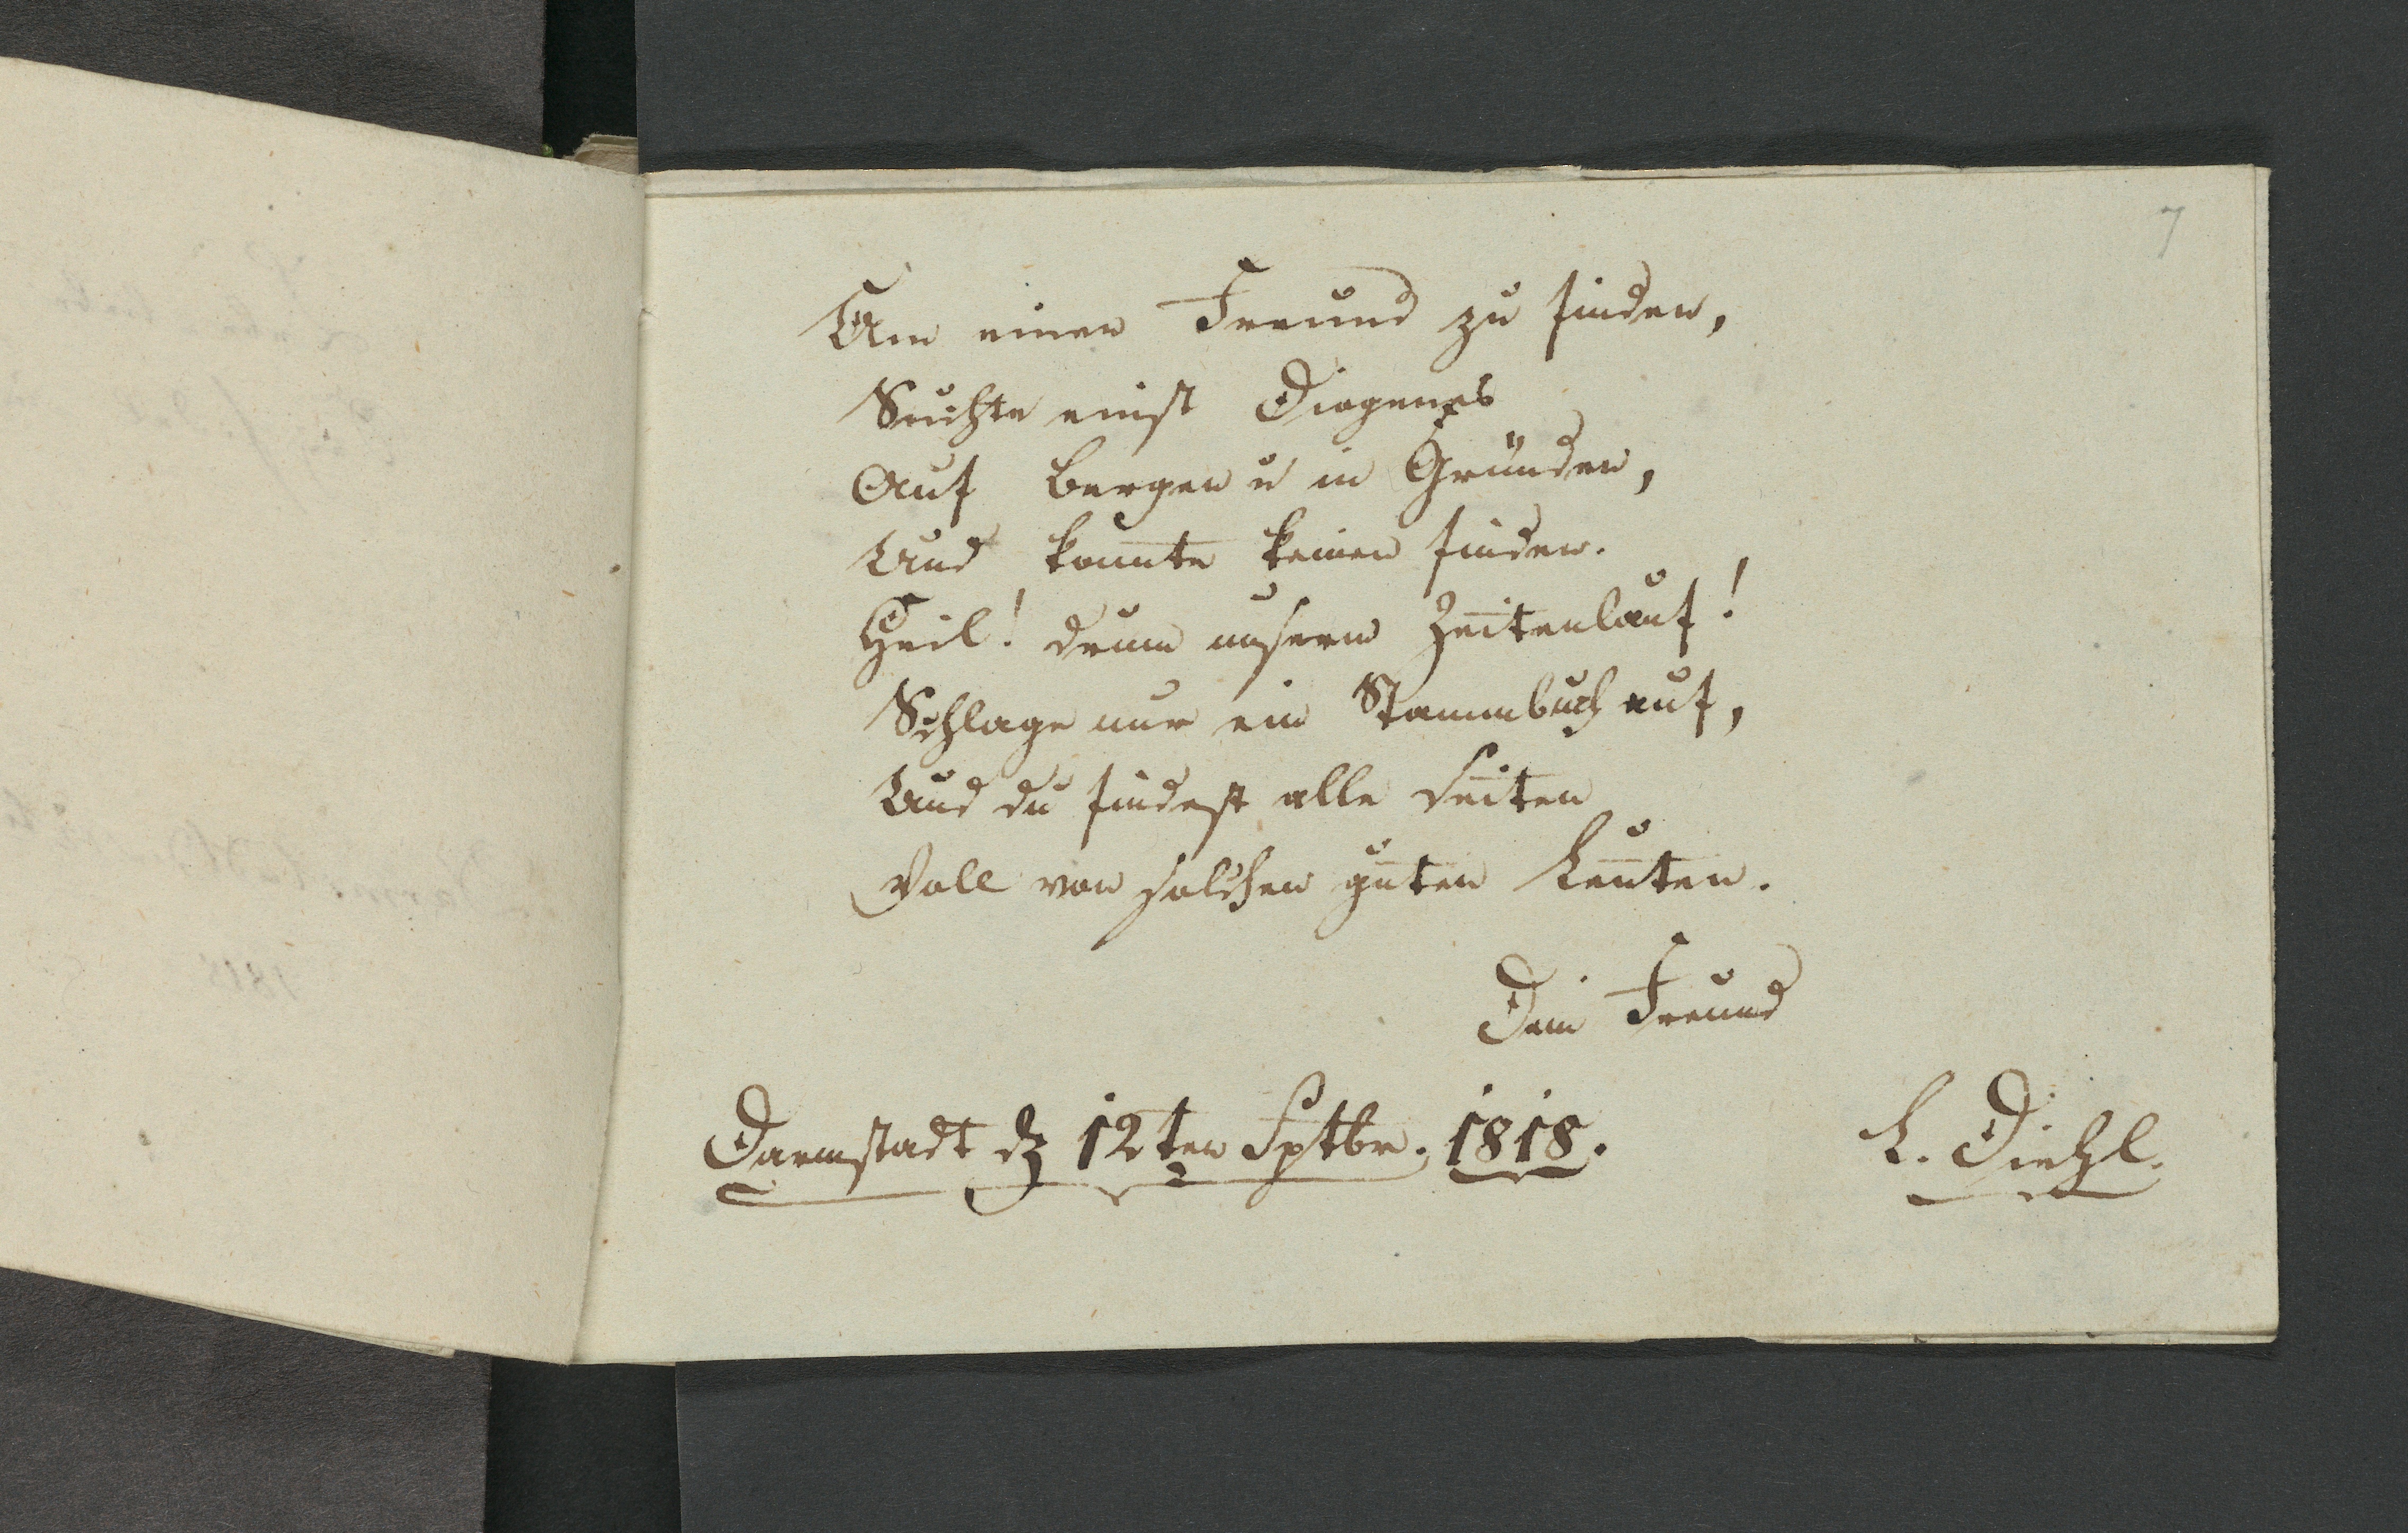 7
Um einen Freund zu finden,
Suchte einst Diogenes
Auf Bergen u in Gründen,
Und konnte keinen finden.
Heil! drum unserm Zeitenlauf!
Schlage nur ein Stammbuch auf,
Und du findest alle Seiten
Voll von solchen guten Leuten.
Dein Freund
Darmstadt d 12ten Sptbr. 1818.
L. Diehl.